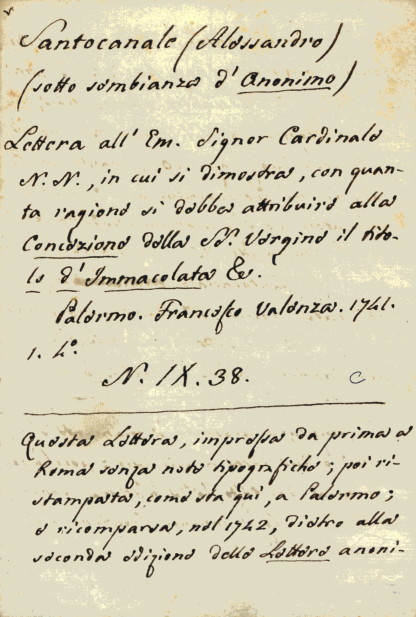 Santocanale (Alessandro)
(sotto sembianza d' Anonimo)
Lettera all' Em. Signor Cardinale
N. N., in cui si dimostra, con quan-
ta ragione si debba attribuire alla
Concezione della SS. Vergine il tito-
lo d' Immacolata &c.
Palermo. Francesco Valenza. 1741.
1. 4°.
N. IX. 38.
C
Questa Lettera, impressa da prima a
Roma senza note tipografiche; poi ri-
stampata, come sta qui, a Palermo;
e ricomparsa, nel 1742, dietro alla
seconda edizione delle Lettere anoni-